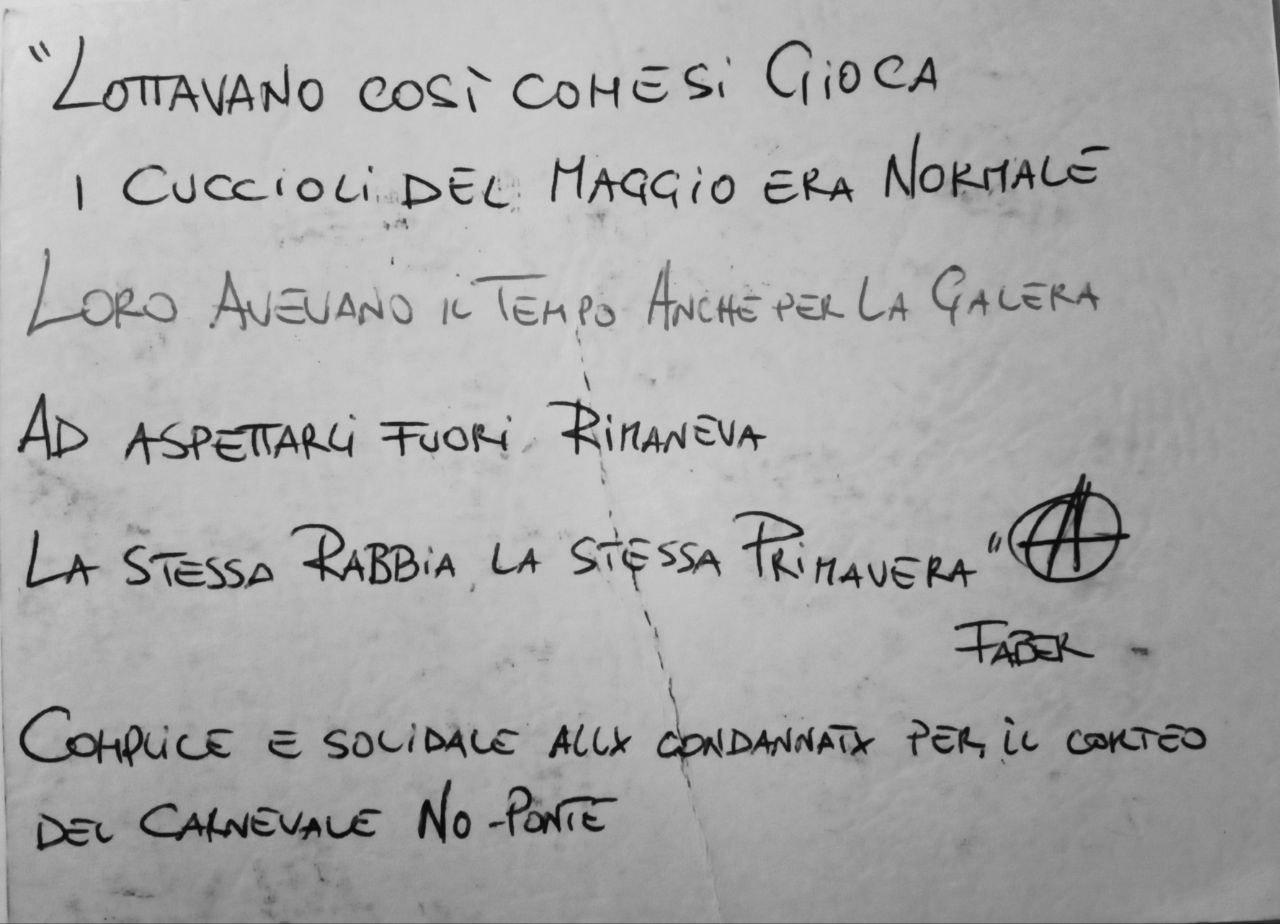 "LOTTAVANO COSÌ COME SI GIOCA
I CUCCIOLI DEL MAGGIO ERA NORMALE
LORO AVEVANO IL TEMPO ANCHE PER LA GALERA
AD ASPETTARLI FUORI RIMANEVA
LA STESSA RABBIA, LA STESSA PRIMAVERA" Ⓐ
FABER
COMPLICE E SOLIDALE ALLX CONDANNATX PER IL CORTEO
DEL CARNEVALE NO-PONTE